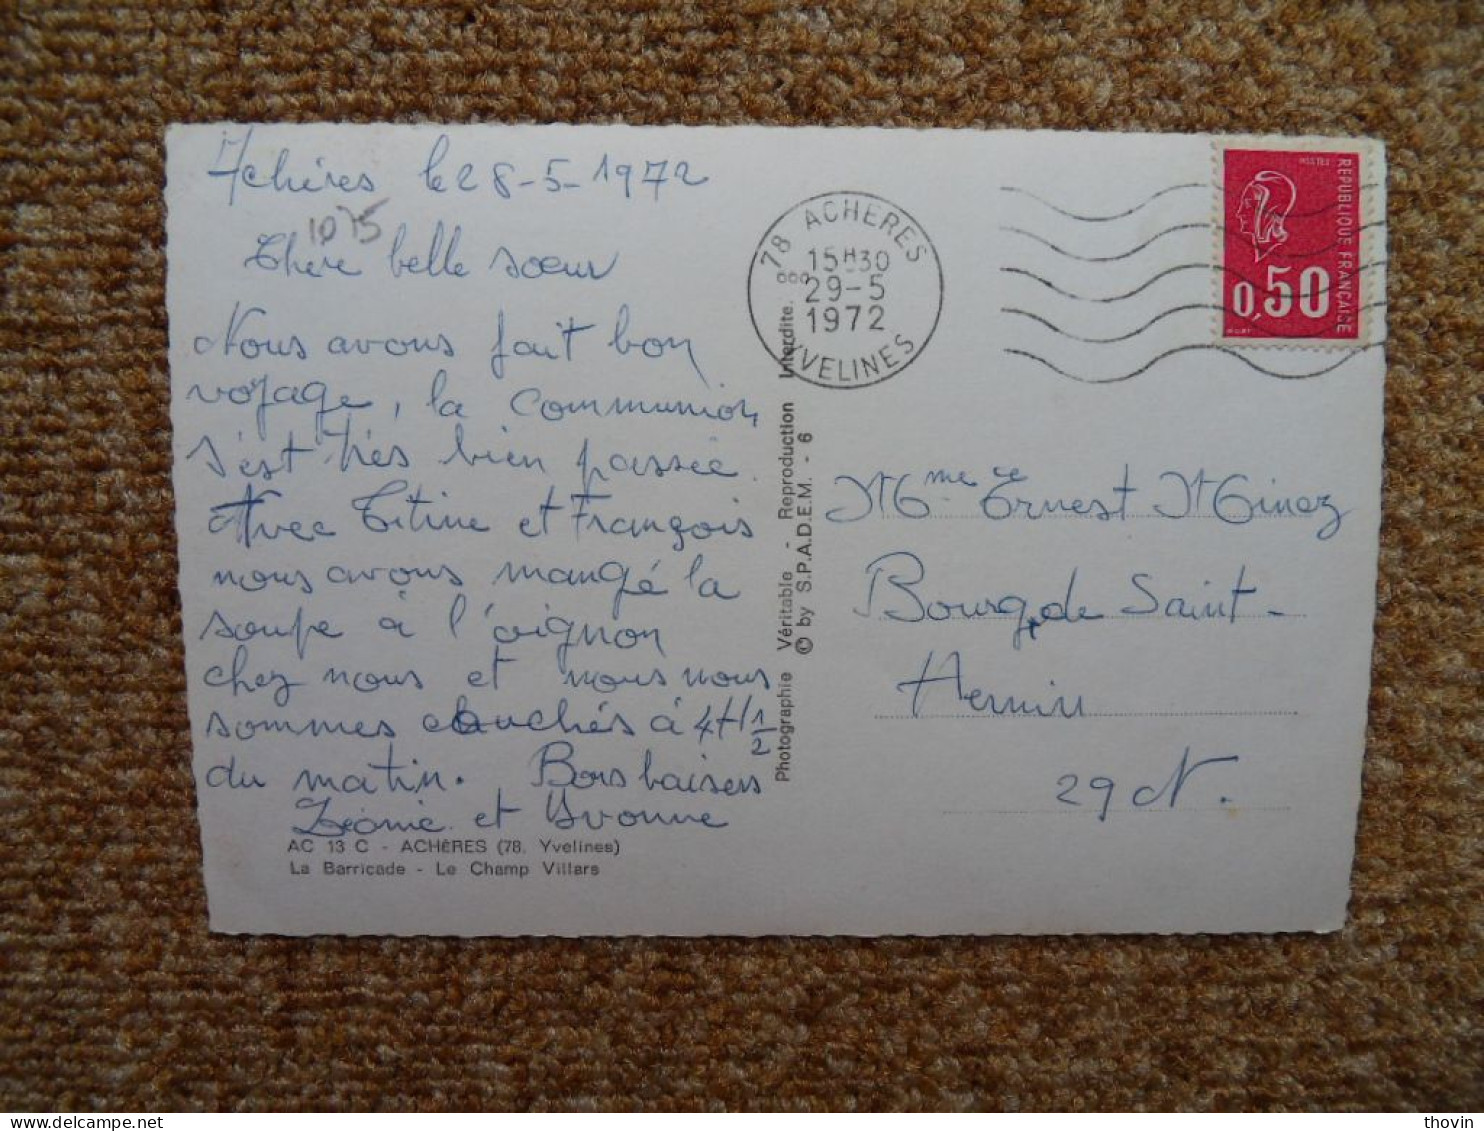 Achères le 28-5-1972
1075
Chère belle sœur
Nous avons fait bon
voyage, la communion
s'est très bien passée
Avec Titine et François
nous avons mangé la
soupe à l'oignon
chez nous et nous nous
sommes couchés à 4H 1/2
du matin. Bons baisers
Léonie et Yvonne
AC 13 C - ACHÈRES (78. Yvelines)
La Barricade - Le Champ Villars
Photographie Véritable - Reproduction Interdite.
© by S.P.A.D.E.M. - 6
78 ACHERES
15H30
29-5
1972
YVELINES
POSTES
REPUBLIQUE FRANÇAISE
0,50
Mme Ernest Minez
Bourg de Saint-
Hernin
29 N.
thovin